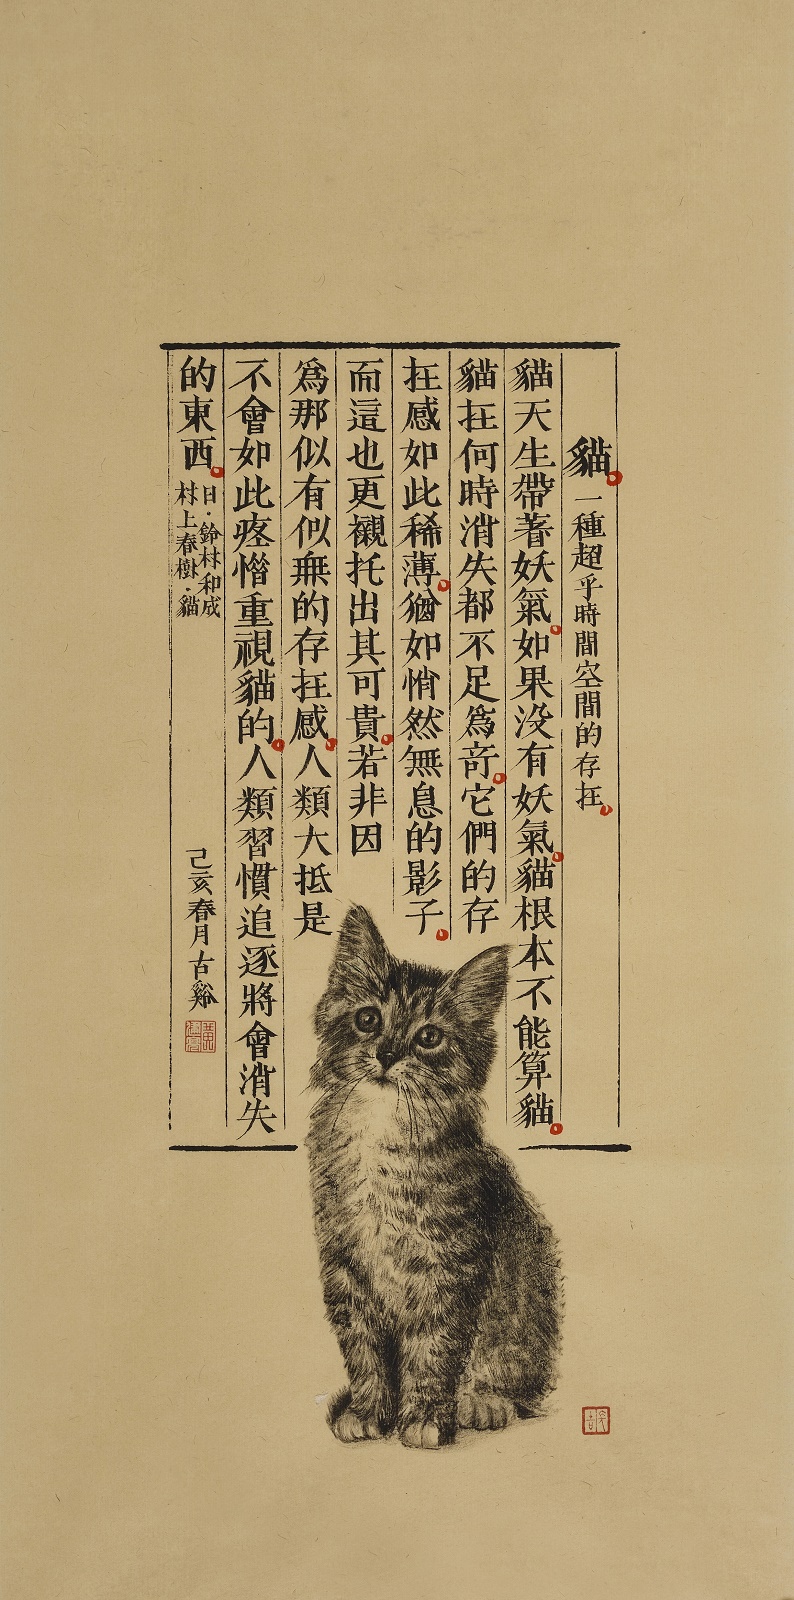 貓。一種超乎時間空間的存在。
貓天生帶著妖氣。如果沒有妖氣。貓根本不能算貓。
貓在何時消失都不足為奇。它們的存
在感如此稀薄。猶如悄然無息的影子。
而這也更襯托出其可貴。若非因
為那似有似無的存在感。人類大抵是
不會如此疼惜重視貓的。人類習慣追逐將會消失
的東西。
日·鈴村和成
村上春樹·貓
己亥春月古谿